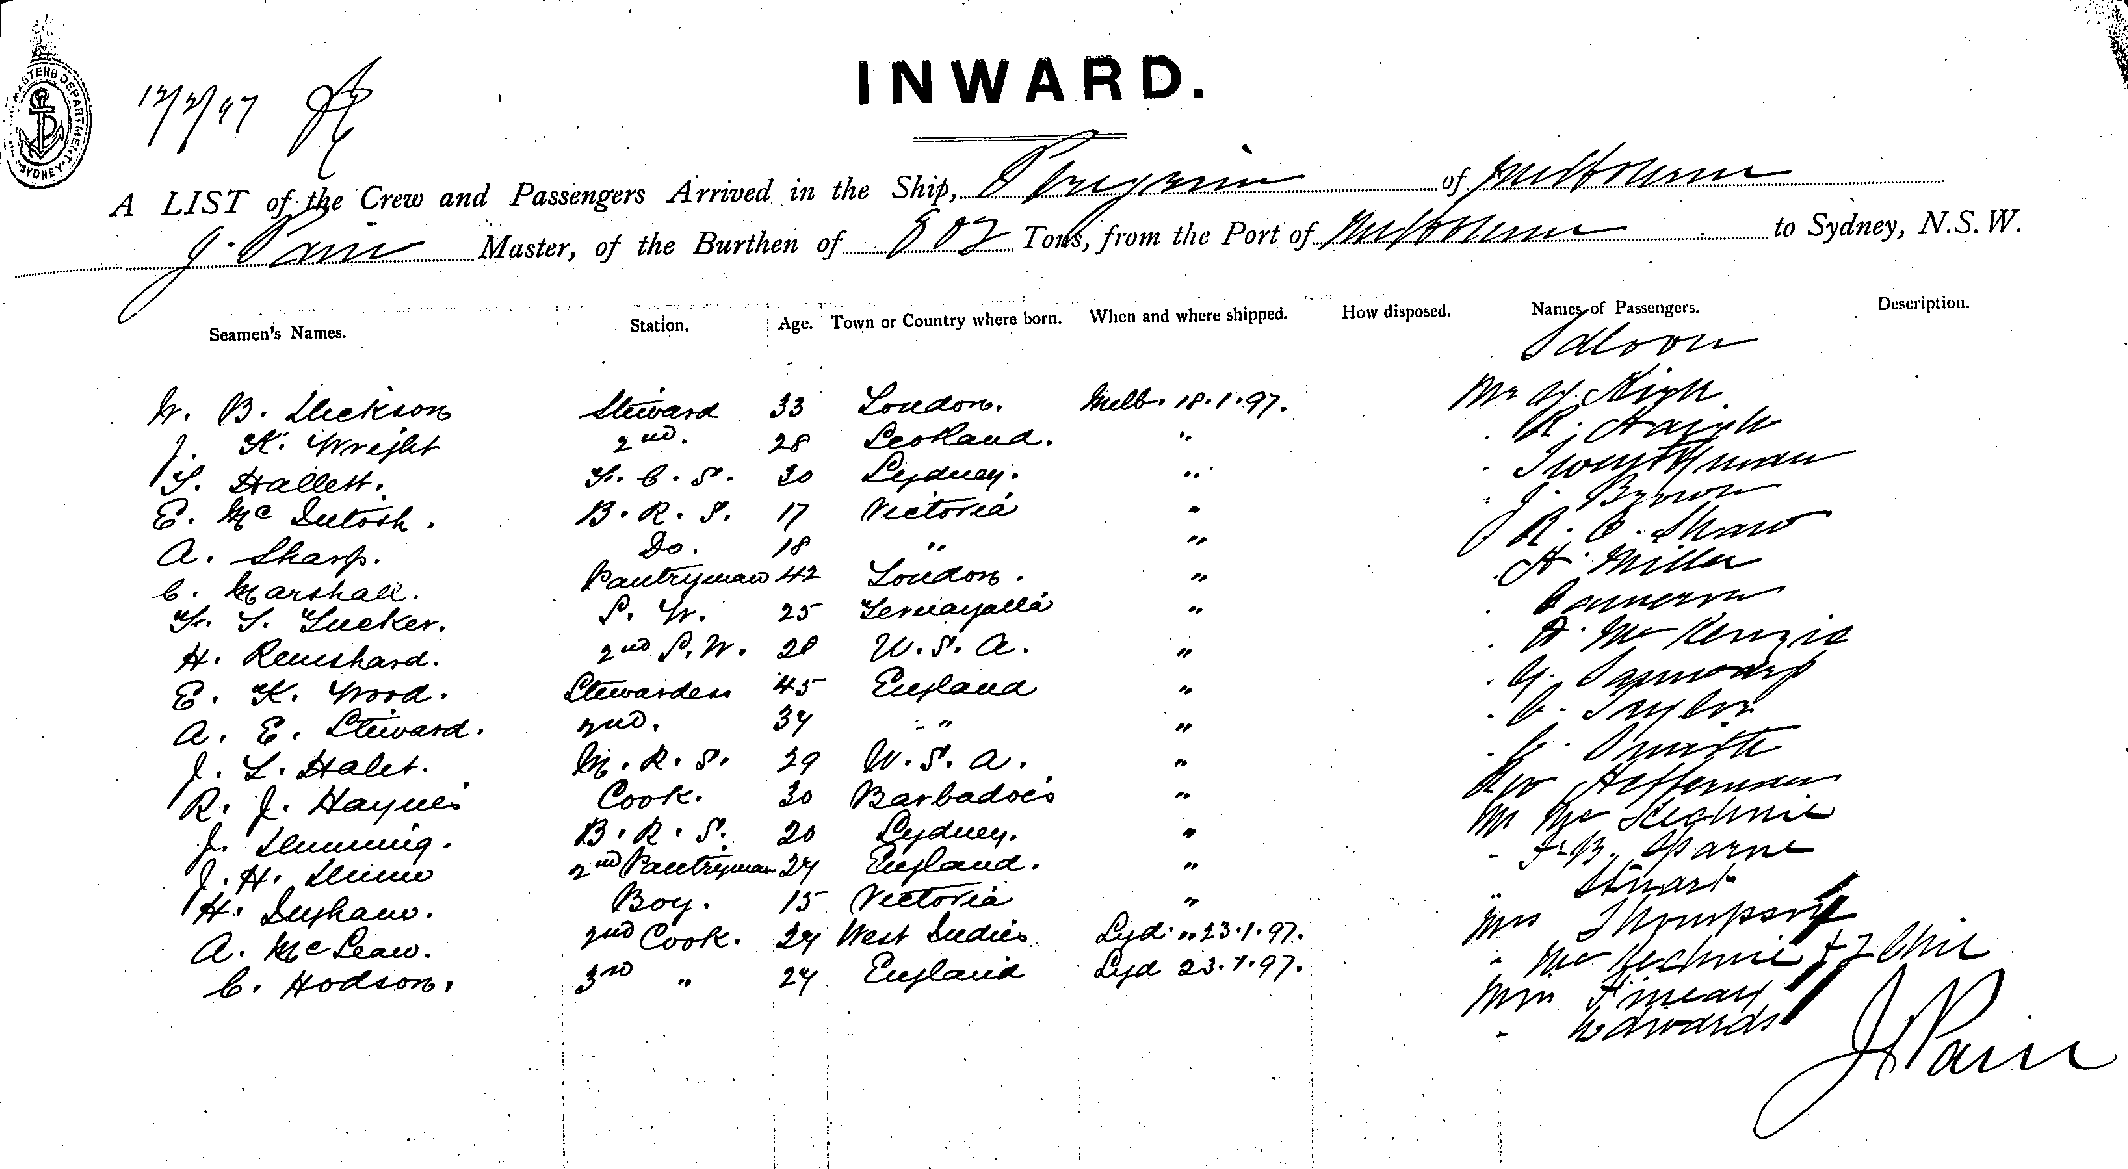 MASTERS DEPARTMENT
SYDNEY
12/2/97
INWARD.
A LIST of the Crew and Passengers Arrived in the Ship, Peregrine of Melbourne
J. Pain Master, of the Burthen of 802 Tons, from the Port of Melbourne to Sydney, N.S.W.
Seamen's Names. Station. Age. Town or Country where born. When and where shipped. How disposed. Names of Passengers. Description.
Saloon
W. B. Dickson Steward 33 London. Melb. 18.1.97. Mr High
J. K. Wright 2nd. 28 Scotland. " R. Haigh
T. Hallett. F. C. S. 30 Sydney. " Twentyman
E. McIntosh. B. R. S. 17 Victoria " J. Brown
A. Sharp. Do. 18 " " R. C. Shaw
C. Marshall. Pantryman 42 London. " A. Miller
F. S. Tucker. S. W. 25 " Cameron
H. 2nd S. W. 28 U. S. A. " A. McKenzie
E. K. Wood. Stewardess 45 England " G.
A. E. Steward. 2nd. 34 " " C. Taylor
J. L. Halet. M. R. S. 29 U. S. A. " C. Smith
R. J. Haynes Cook. 30 Barbadoes " Rev Heffernan
J. Denning. B. R. S. 20 Sydney. " Mr McKechnie
J. H. Dunn 2nd Pantryman 24 England. " F. B.
H. Boy. 15 Victoria " " Stuart
A. McLean. 2nd Cook. 24 West Indies Syd. " 23.1.97. Mrs Thompson
C. Hodson. 3rd " 24 England Syd 23.1.97. " McKechnie & 2 Chil
Miss Finlay
" Edwards
J Pain